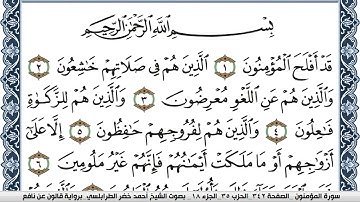 بِسْمِ اللَّهِ الرَّحْمَٰنِ الرَّحِيمِ
قَدْ أَفْلَحَ الْمُؤْمِنُونَ ١ الَّذِينَ هُمْ فِي صَلَاتِهِمْ خَاشِعُونَ ٢
وَالَّذِينَ هُمْ عَنِ اللَّغْوِ مُعْرِضُونَ ٣ وَالَّذِينَ هُمْ لِلزَّكَوٰةِ
فَاعِلُونَ ٤ وَالَّذِينَ هُمْ لِفُرُوجِهِمْ حَافِظُونَ ٥ إِلَّا عَلَىٰ
أَزْوَاجِهِمْ أَوْ مَا مَلَكَتْ أَيْمَانُهُمْ فَإِنَّهُمْ غَيْرُ مَلُومِينَ ٦
سورة المؤمنون . الصفحة ٣٤٢ الحزب ٣٥ الجزء ١٨ . بصوت الشيخ أحمد خضر الطرابلسي . برواية قالون عن نافع